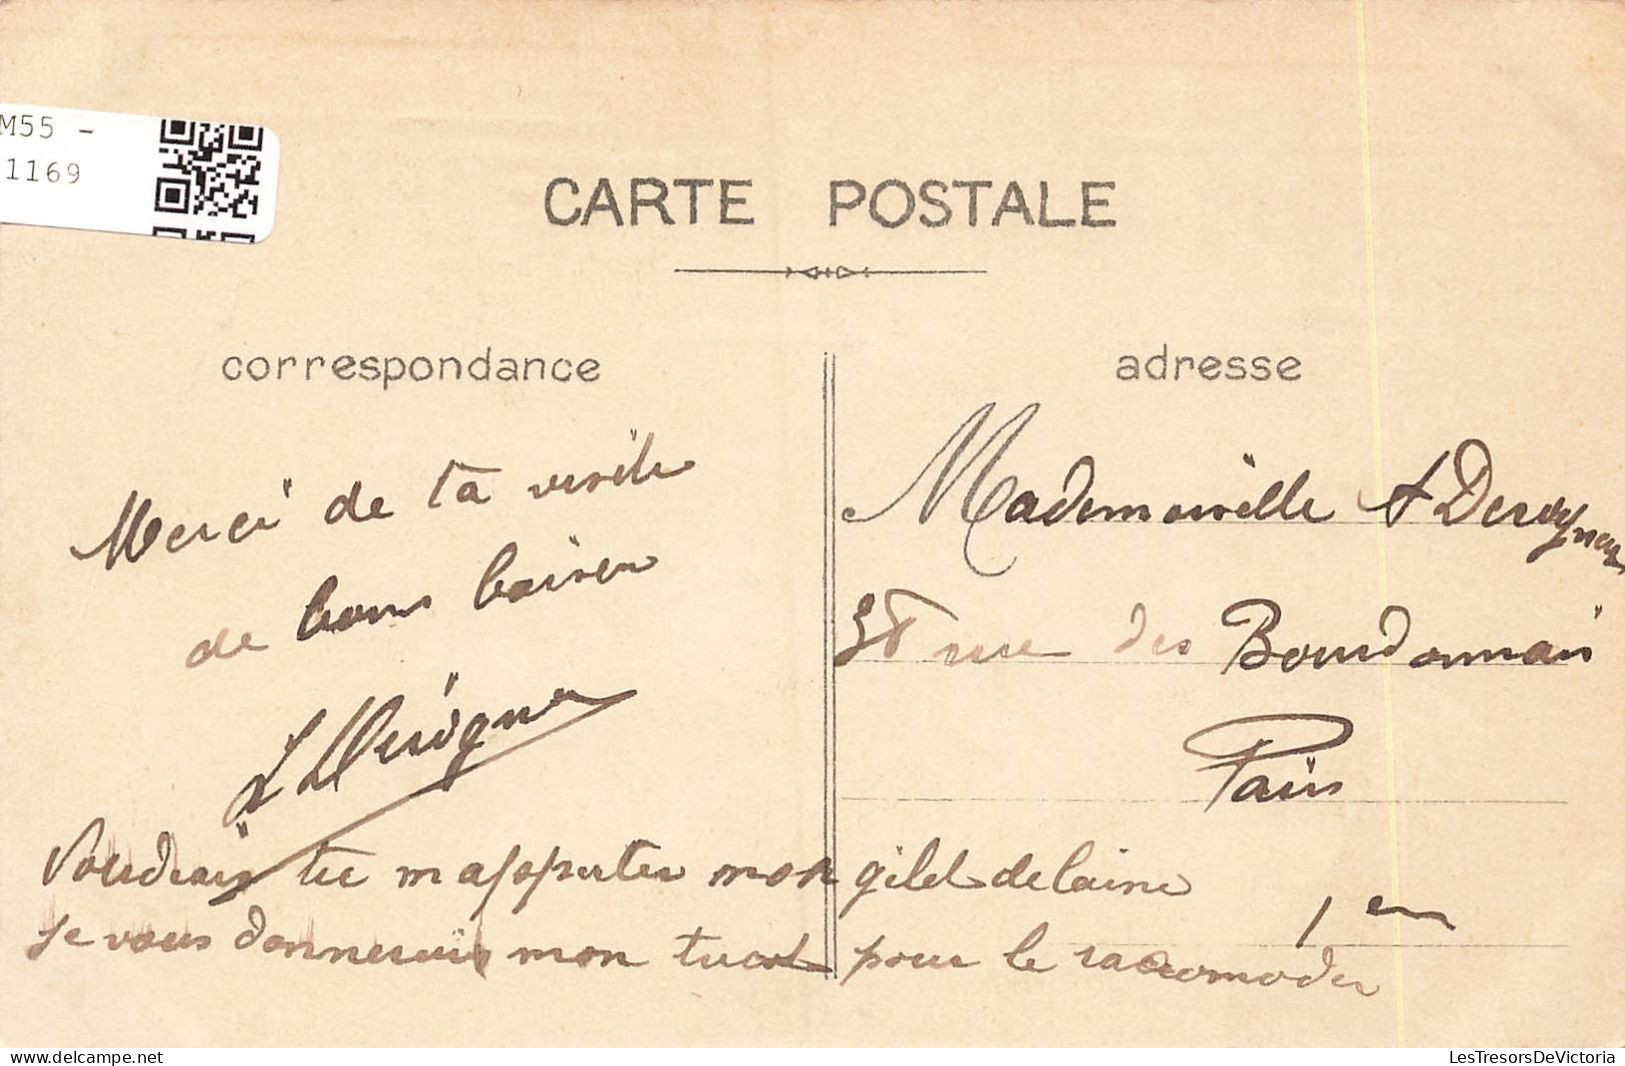 M55 -
1169
CARTE POSTALE
correspondance
adresse
Merci de ta visite
de bons baisers
Mademoiselle A
38 rue des Bourdonnais
Paris
1er
Voudrais tu m apporter mon gilet de laine
je vous donnerais mon tricot pour le racomoder
delcampe.net
LesTresorsDeVictoria